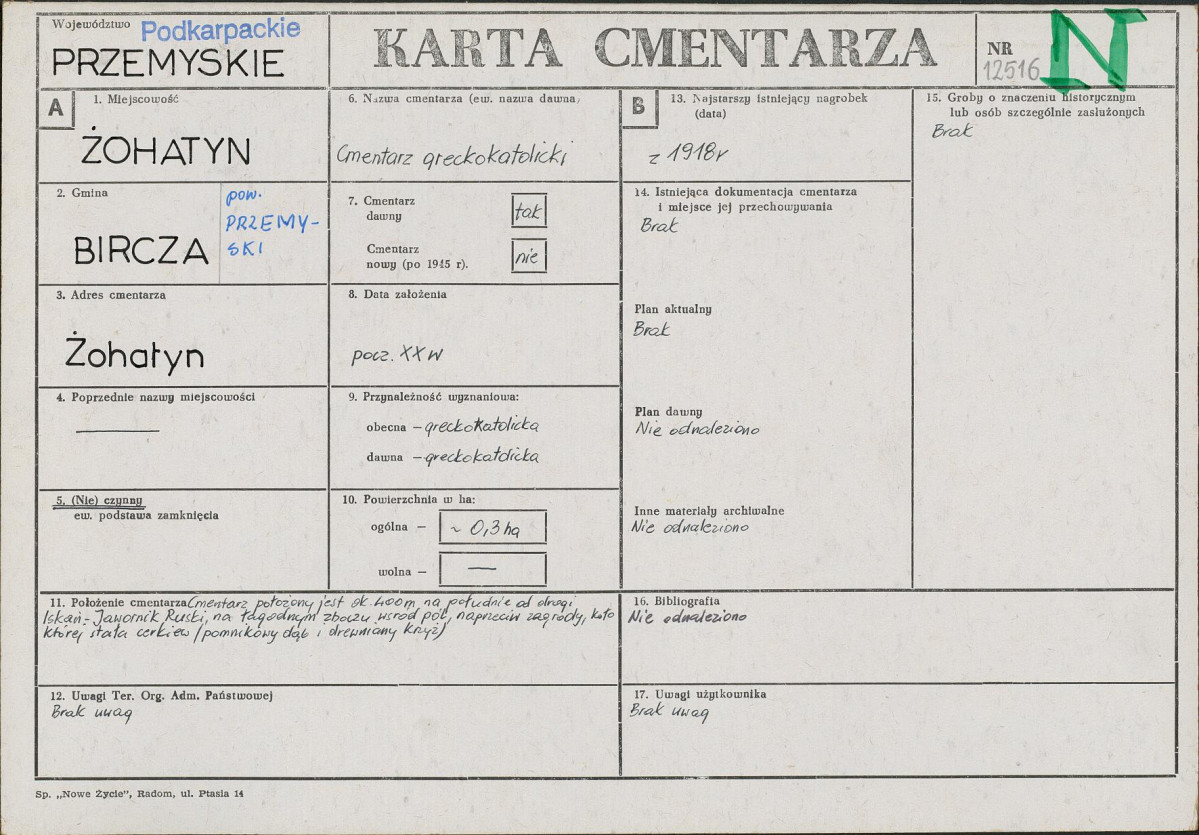 Województwo Podkarpackie
PRZEMYSKIE
KARTA CMENTARZA
NR
12516
N
A
1. Miejscowość
ŻOHATYN
2. Gmina
BIRCZA
pow.
PRZEMY-
SKI
3. Adres cmentarza
Żohatyn
4. Poprzednie nazwy miejscowości
—
5. (Nie) czynny
ew. podstawa zamknięcia
6. Nazwa cmentarza (ew. nazwa dawna)
Cmentarz greckokatolicki
7. Cmentarz
dawny
tak
Cmentarz
nowy (po 1945 r).
nie
8. Data założenia
pocz. XX w
9. Przynależność wyznaniowa:
obecna – greckokatolicka
dawna – greckokatolicka
10. Powierzchnia w ha:
ogólna – ~ 0,3 ha
wolna – —
B
13. Najstarszy istniejący nagrobek
(data)
z 1918r
14. Istniejąca dokumentacja cmentarza
i miejsce jej przechowywania
Brak
Plan aktualny
Brak
Plan dawny
Nie odnaleziono
Inne materiały archiwalne
Nie odnaleziono
15. Groby o znaczeniu historycznym
lub osób szczególnie zasłużonych
Brak
11. Położenie cmentarza Cmentarz położony jest ok. 400m na południe od drogi
Iskań - Jawornik Ruski, na łagodnym zboczu wsrod pól, naprzeciw zagrody, koło
której stała cerkiew (pomnikowy dąb i drewniany krzyż)
12. Uwagi Ter. Org. Adm. Państwowej
Brak uwag
16. Bibliografia
Nie odnaleziono
17. Uwagi użytkownika
Brak uwag
Sp. „Nowe Życie”, Radom, ul. Ptasia 14